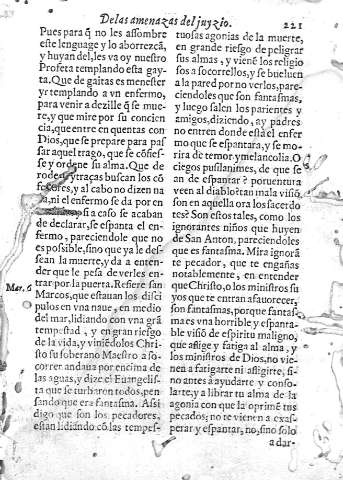 De las amenazas del juyzio.
221
Pues para q̃ no les assombre
este lenguage y lo aborrezcã,
y huyan del, les va oy nuestro
Profeta templando esta gay-
ta. Que de gaitas es menester
yr templando a vn enfermo,
para venir a dezille q̃ se mue-
re, y que mire por su concien
cia, que entre en quentas con
Dios, que se prepare para pas
sar aquel trago, que se cõfies-
se y ordene su alma. Que de
rodeos y traças buscan los cõ
fessores, y al cabo no dizen na
da, ni el enfermo se da por en
si a caso se acaban
de declarar, se espanta el en-
fermo, pareciendole que no
es possible, sino que ya le des-
sean la muerte, y da a enten-
der que le pesa de verles en-
trar por la puerta. Refiere san
Mar. 6
Marcos, que estauan los disci
pulos en vna naue, en medio
del mar, lidiando con vna grã
tempestad, y en gran riesgo
de la vida, y viniẽdolos Chri-
sto su soberano Maestro a so-
correr andaua por encima de
las aguas, y dize el Euangelis-
ta que se turbaron todos, pen-
sando que era fantasma. Assi
digo que son los pecadores,
estan lidiando cõ las tempes-
tuosas agonias de la muerte,
en grande riesgo de peligrar
sus almas, y vienẽ los religio
sos a socorrellos, y se bueluen
a la pared por no verlos, pare-
ciendoles que son fantasmas,
y luego salen los parientes y
amigos, diziendo, ay padres
no entren donde està el enfer
mo que se espantara, y se mo-
rira de temor y melancolia. O
ciegos pusilanimes, de que se
an de espantar? por uentura
veen al diablo? tan mala visiõ,
son en aquella ora los sacerdo
tes? Son estos tales, como los
ignorantes niños que huyen
de San Anton, pareciendoles
que es fantasma. Mira ignorã
te pecador, que te engañas
notablemente, en entender
que Christo, o los ministros su
yos que te entran a fauorecer,
son fantasmas, porque fantas-
ma es vna horrible y espanta-
ble visiõ de espiritu maligno,
que aflige y fatiga al alma, y
los ministros de Dios, no vie-
nen a fatigarte ni afligirte, si-
no antes a ayudarte y conso-
larte, y a librar tu alma de la
agonia con que la oprimẽ tus
pecados: no te vienen a exas-
perar y espantar, no, sino solo
a dar-